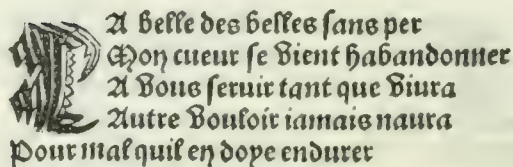 LA belle des belles ſans per
Mon cueur ſe vient habandonner
A vous ſeruir tant que viura
Autre vouloir iamais naura
Pour mal quil en doye endurer